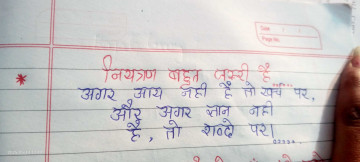 नियंत्रण बहुत जरुरी है
अगर आय नही है तो खर्च पर,
और अगर ज्ञान नही
है, तो शब्दो पर।